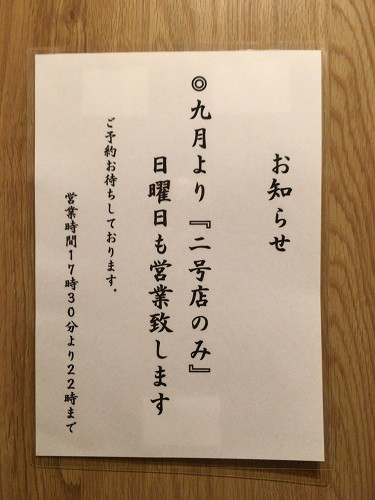 お知らせ
◎九月より『二号店のみ』
日曜日も営業致します
ご予約お待ちしております。
営業時間17時30分より22時まで